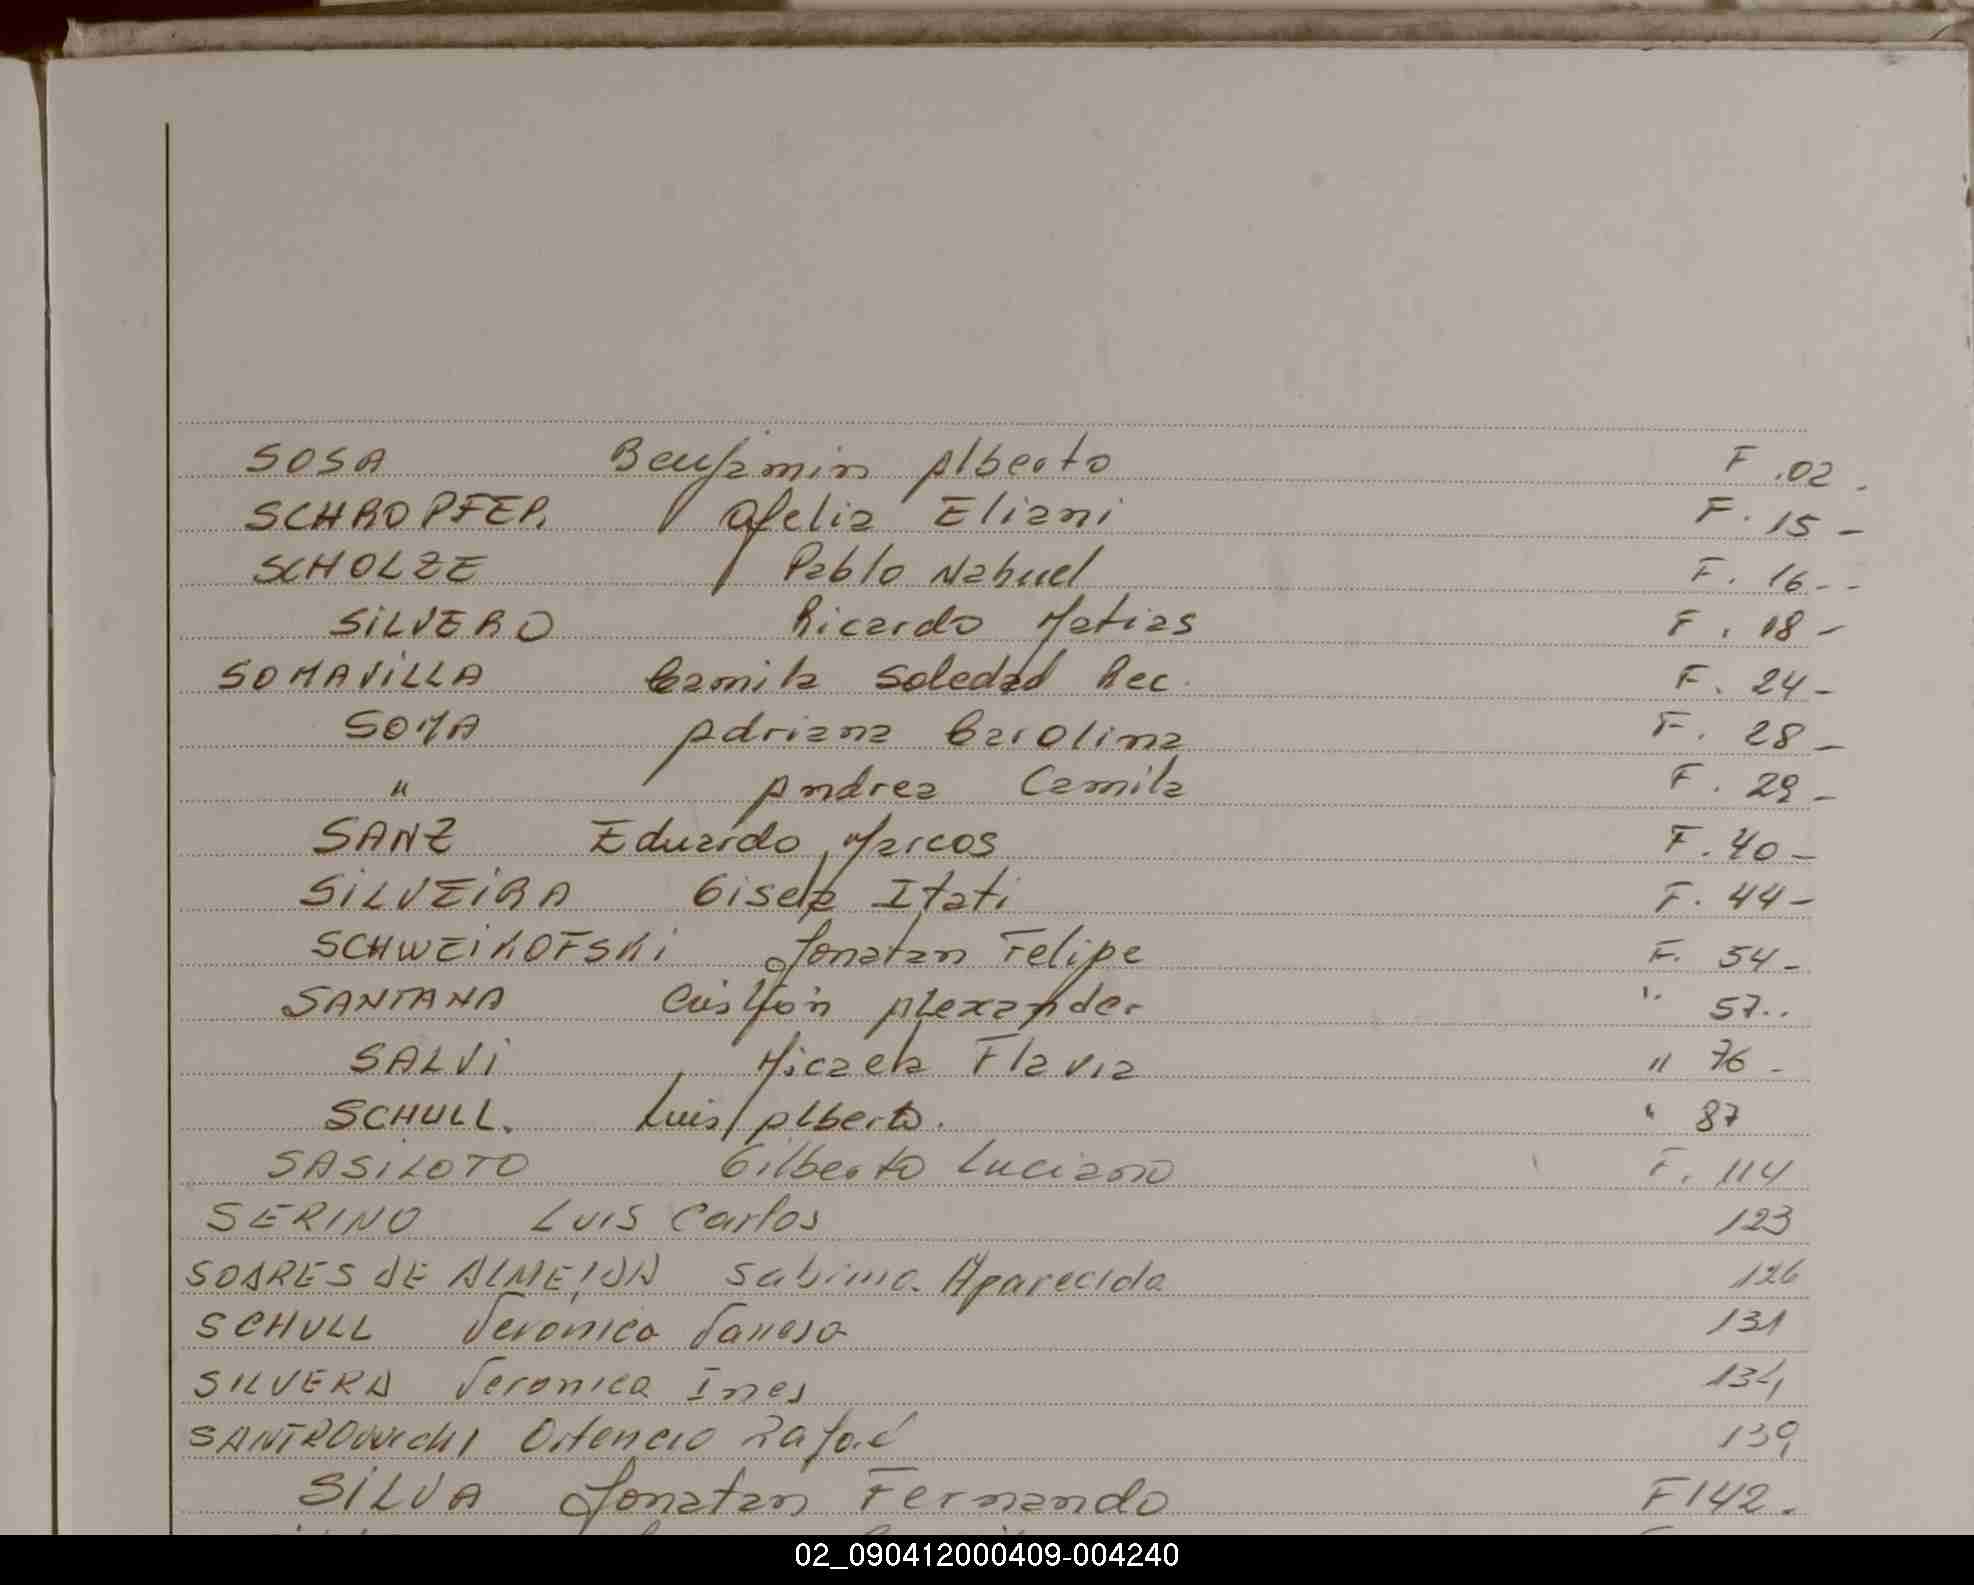 SOSA Benjamin Alberto F. 02.
SCHROPFER Ofelia Eliani F. 15-
SCHOLZE Pablo Nahuel F. 16--
SILVERO Ricardo Matias F. 18-
SOMAVILLA Camila Soledad Rec. F. 24-
SOMA Adriana Carolina F. 28-
" Andrea Camila F. 29-
SANZ Eduardo Marcos F. 40-
SILVEIRA Gisela Itati F. 44-
SCHWEIKOFSKI Jonatan Felipe F. 54-
SANTANA Cristian Alexander " 57..
SALVI Micaela Flavia " 76-
SCHULL. Luis Alberto. " 87
SASILOTO Gilberto Luciano F. 114
SERINO Luis Carlos 123
SOARES DE ALMEIDA Sabina Aparecida 126
SCHULL Veronica Vanesa 131
SILVERA Veronica Ines 134
Ortencio Rafael 139
SILVA Jonatan Fernando F 142.
02_090412000409-004240